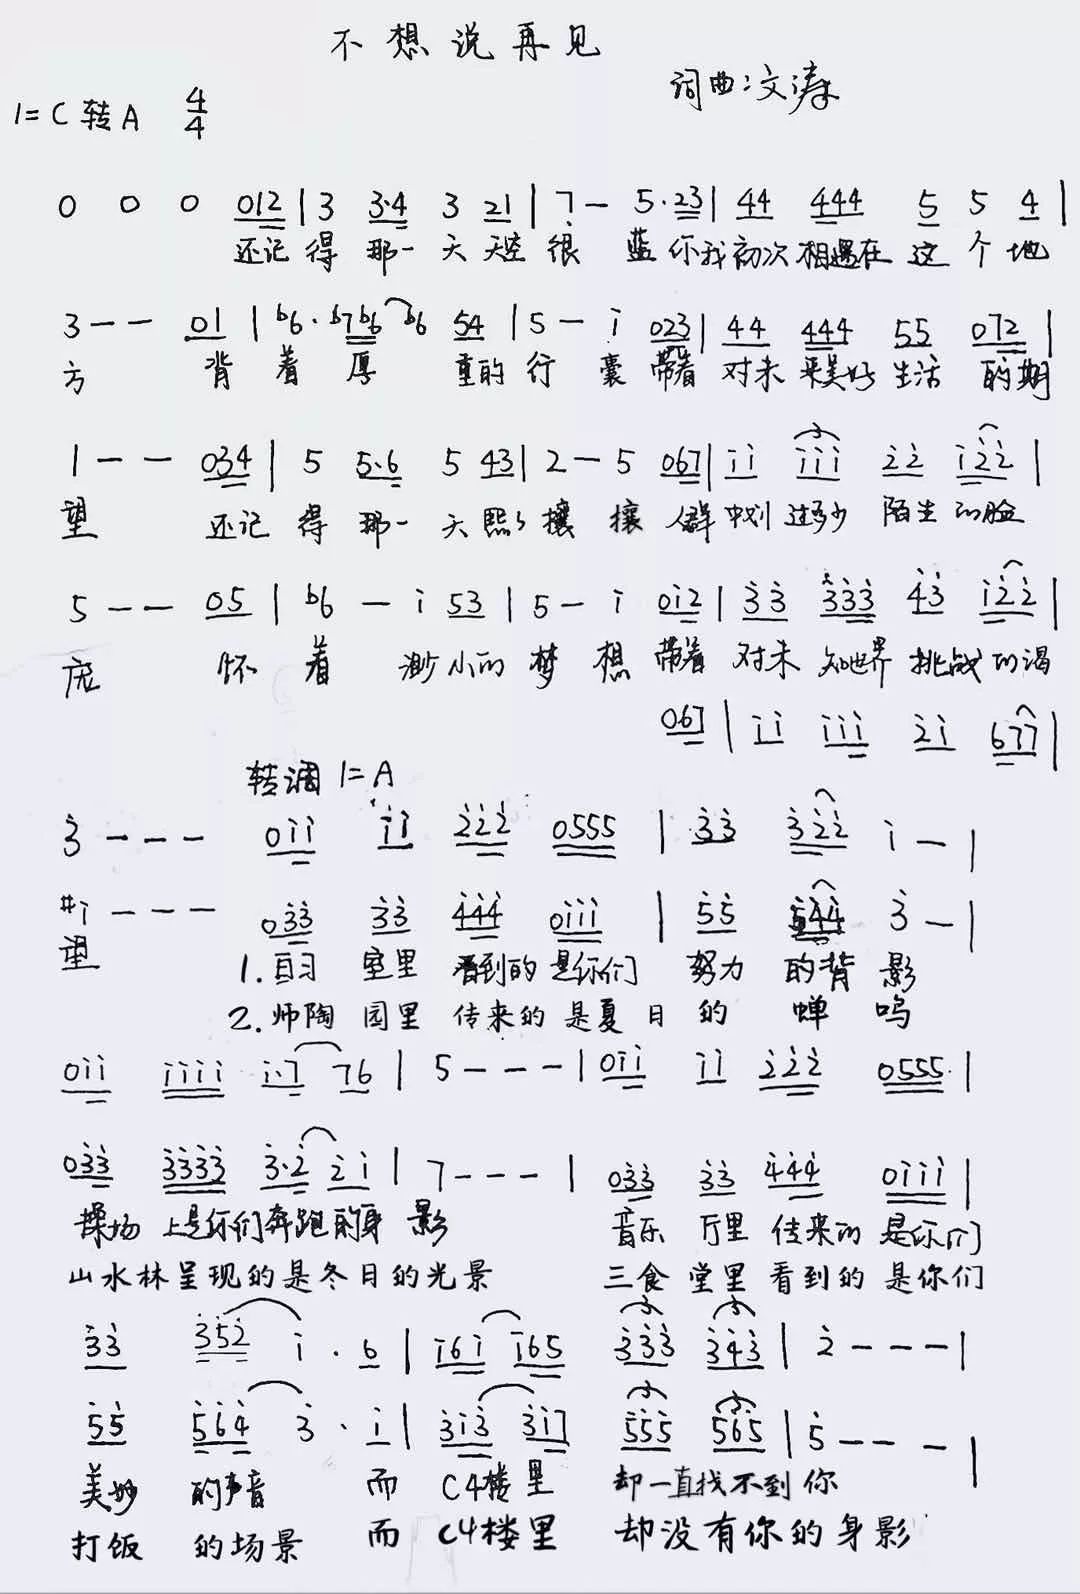 不想说再见
词曲:文涛
1=C转A 4/4
0 0 0 012 | 3 3·4 3 21 | 7 - 5·23 | 44 444 5 5 4 |
还记得那一天天空很蓝你我初次相遇在这个地
3 - - 01 | b6·b7b6 b6 54 | 5 - i 023 | 44 444 55 072 |
方 背着厚重的行囊带着对未来美好生活的期
1 - - 034 | 5 5·6 5 43 | 2 - 5 067 | ii iii 22 i22 |
望 还记得那一天熙熙攘攘人群中划过多少陌生的脸
5 - - 05 | b6 - i 53 | 5 - i 0i2 | 33 333 43 i22 |
庞 怀着渺小的梦想带着对未知世界挑战的渴
067 | ii iii 2i 677 |
转调1=A
3 - - - 0ii ii 222 0555 | 33 322 i - |
#i - - - 033 33 444 0iii | 55 544 3 - |
望 1.自习室里看到的是你们努力的背影
2.师陶园里传来的是夏日的蝉鸣
0ii iiii i·7 76 | 5 - - - | 0ii ii 222 0555 |
033 3333 3·2 2i | 7 - - - | 033 33 444 0iii |
操场上是你们奔跑的身影 音乐厅里传来的是你们
山水林呈现的是冬日的光景 三食堂里看到的是你们
33 352 i·6 | i6i i65 333 343 | 2 - - - |
55 564 3·i | 3i3 3i7 555 565 | 5 - - - |
美妙的声音而C4楼里却一直找不到你
打饭的场景而C4楼里却没有你的身影